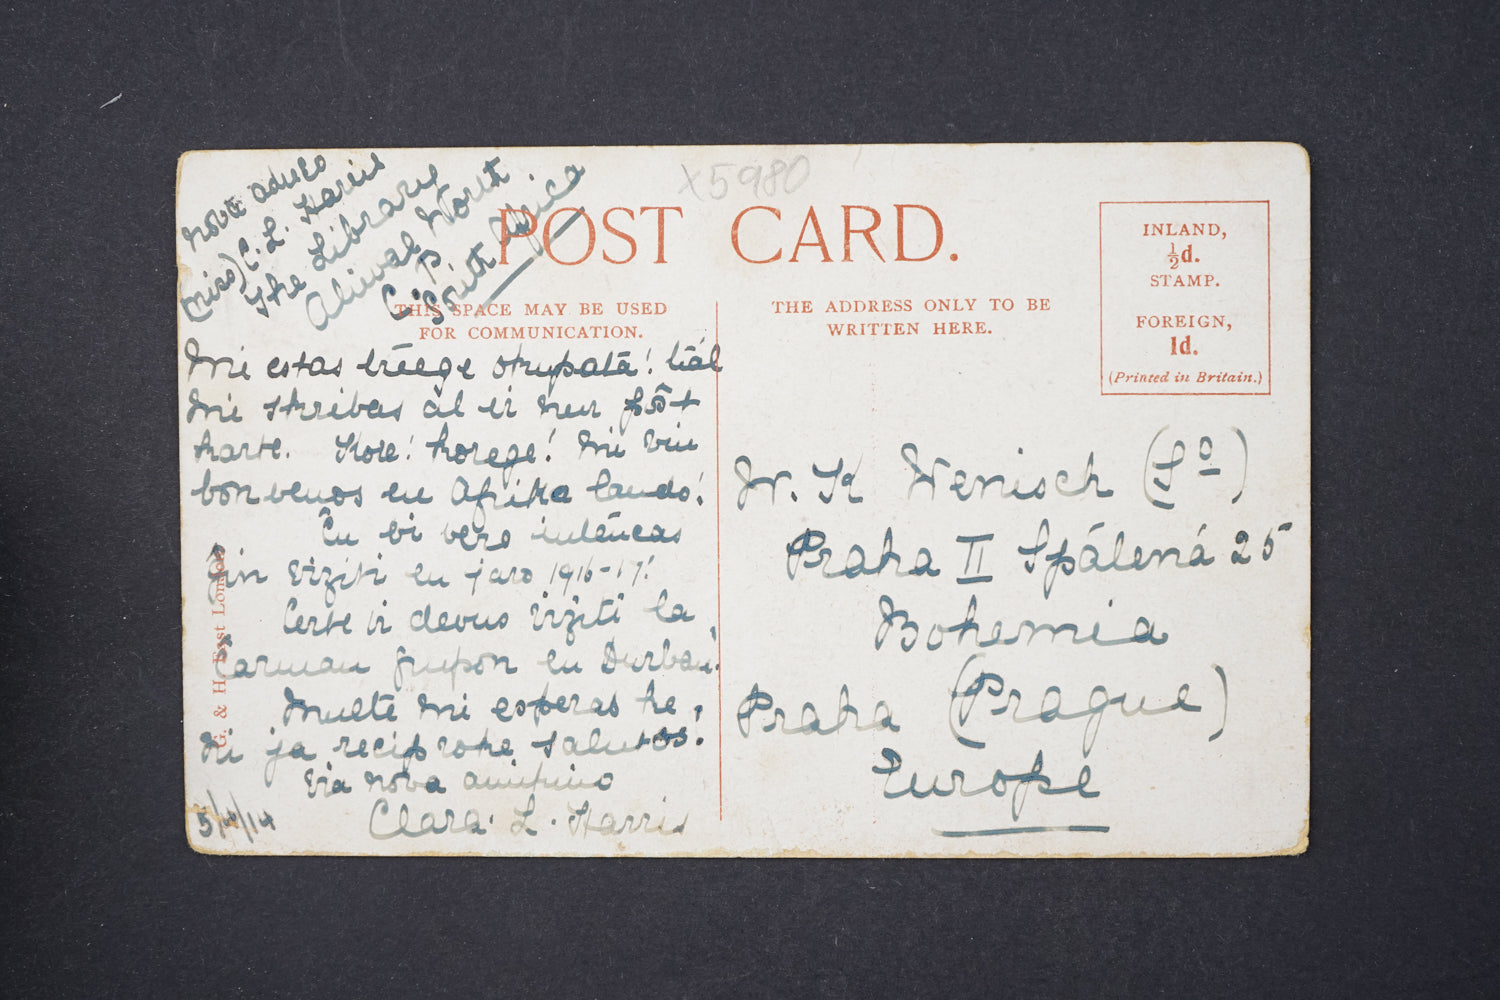 x5980
Nova adreso
(miss) C. L. Harris
The Library
Aliwal North
C. P.
South Africa
POST CARD.
THIS SPACE MAY BE USED
FOR COMMUNICATION.
THE ADDRESS ONLY TO BE
WRITTEN HERE.
INLAND,
½d.
STAMP.
FOREIGN,
1d.
(Printed in Britain.)
Mi estas treege okupata! tial
mi skribas al vi nur poŝt
karte. Kore! korege! Mi vin
bonvenos en Afrika lando!
Ĉu vi vere intencas
ĝin viziti en jaro 1916-17!
Certe vi devus viziti la
ĉarman grupon en Durban!
Multe mi esperas ke
ni ja reciproke salutos!
Via nova amikino
Clara. L. Harris
5/4/14
G. & H. East London
W. K Wenisch (Sº)
Praha II Spálená 25
Bohemia
Praha (Prague)
Europe